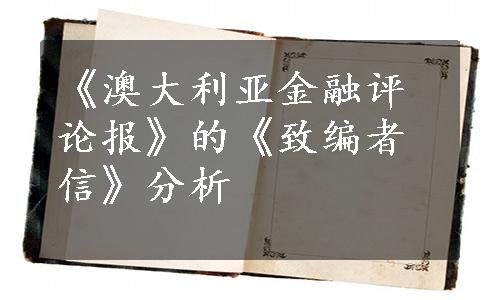 《澳大利亚金融评
论报》的《致编者
信》分析